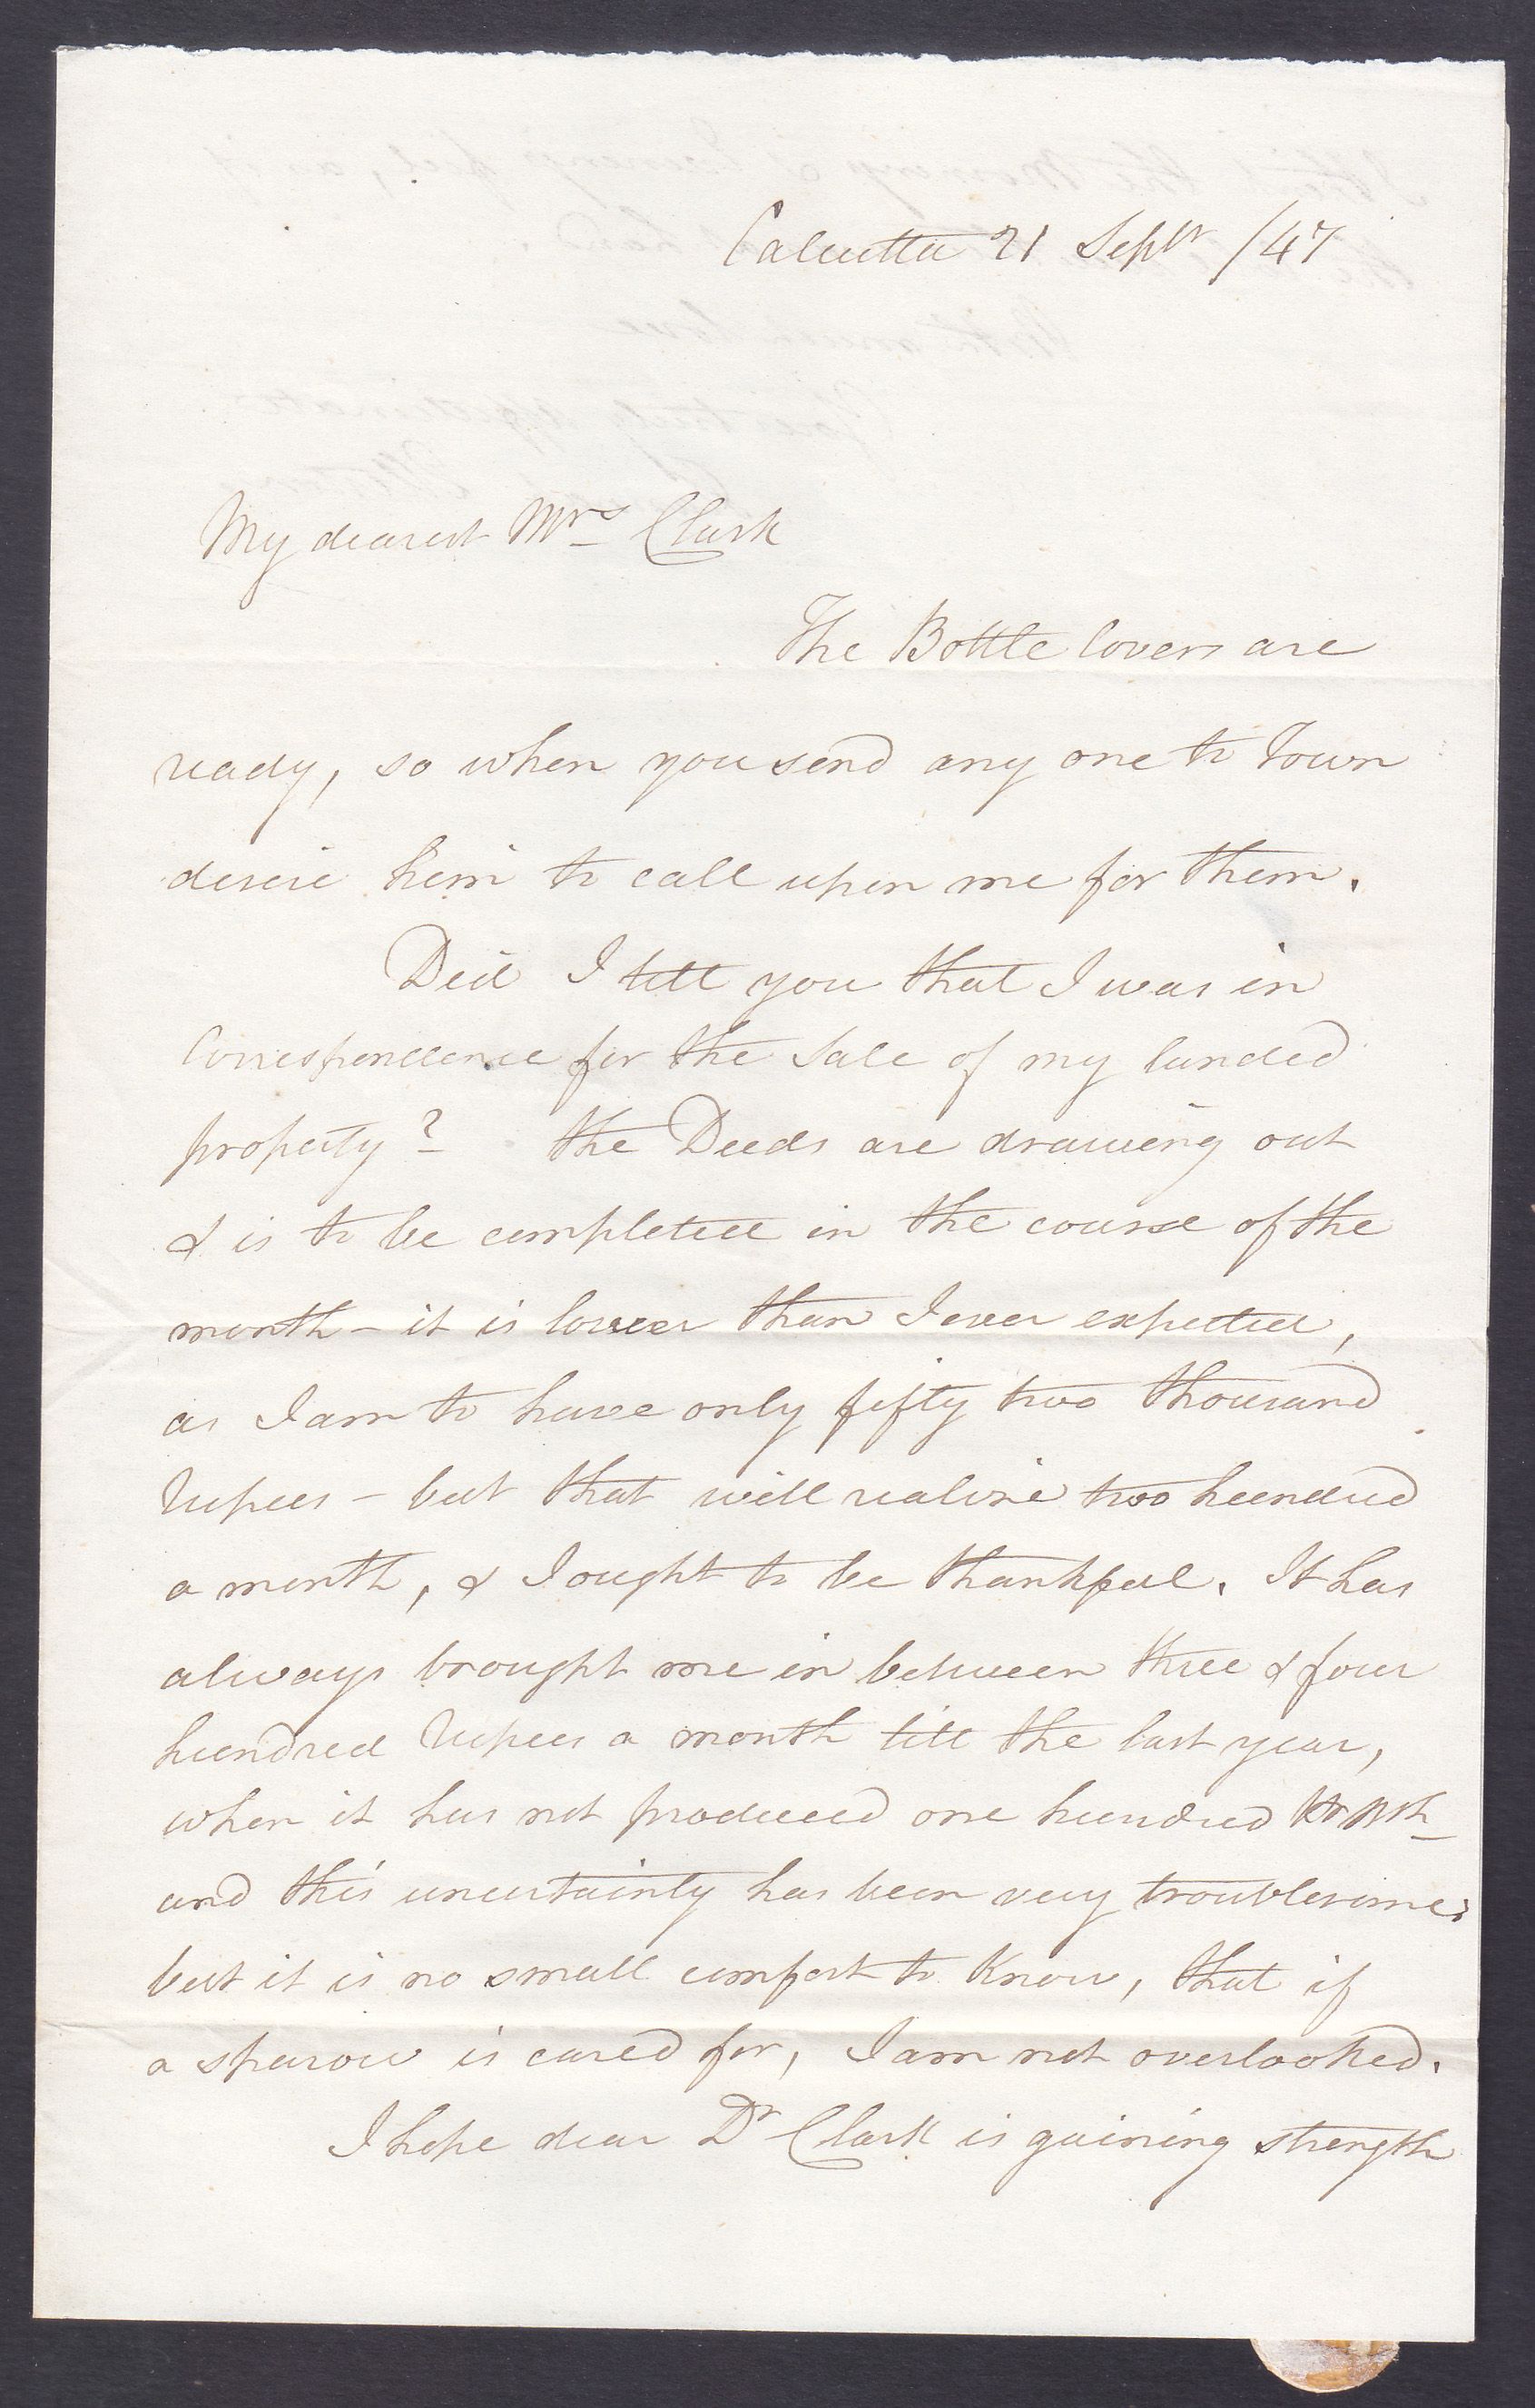 Calcutta 21 Sept /47
My dearest Mrs Clark
The Bottle Covers are
ready, so when you send any one to Town
desire him to call upon me for them.
Did I tell you that I was in
Correspondence for the Sale of my landed
property? the Deeds are drawing out
& is to be completed in the course of the
month - it is lower than I ever expected,
as I am to have only fifty two thousand
Rupees - but that will realise two hundred
a month, & I ought to be thankful. It has
always brought me in between three & four
hundred Rupees a month till the last year,
when it has not produced one hundred
and this uncertainty has been very troublesome;
but it is no small comfort to know, that if
a sparow is cared for, I am not overlooked.
I hope dear Dr Clark is gaining strength